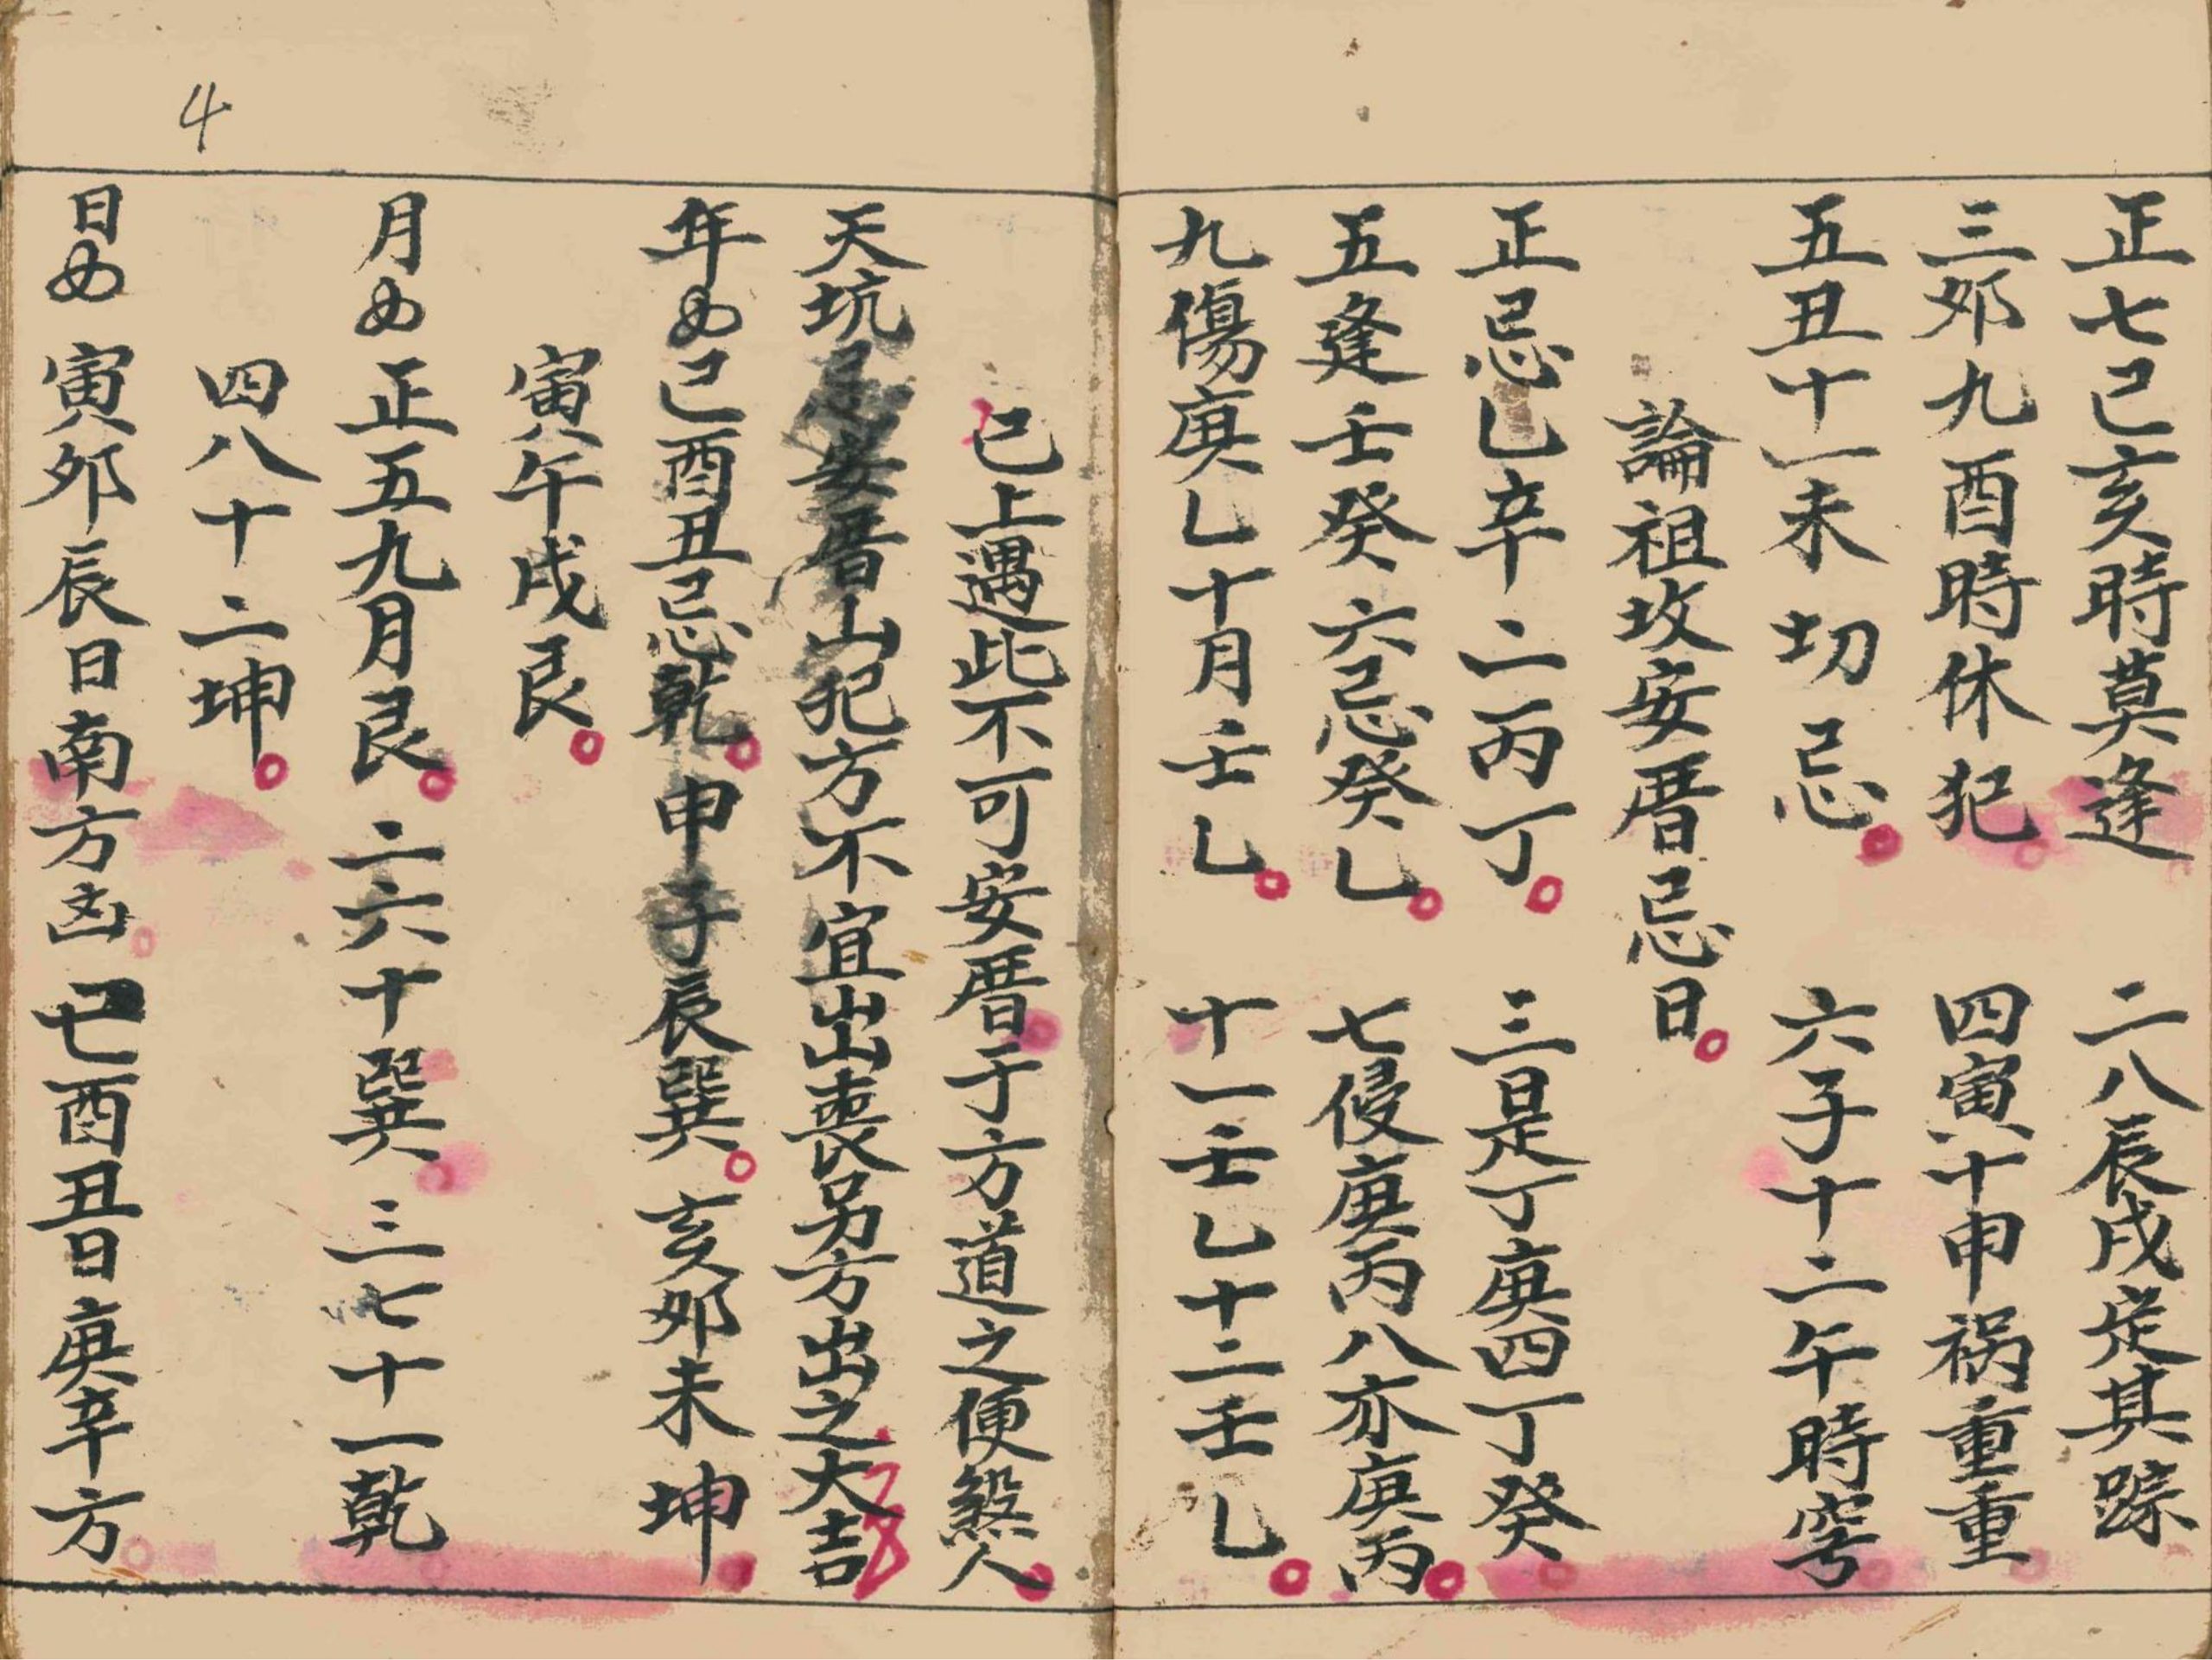 正七巳亥時莫逢 二八辰戌定其踪
三卯九酉時休犯 四寅十申祸重重
五丑十一未切忌 六子十二午時穷
論祖坟安厝忌日
正忌乚辛二丙丁 三是丁庚四丁癸
五逢壬癸六忌癸乚 七侵庚丙八亦庚丙
九傷庚乚十月壬乚 十一壬乚十二壬乚
已上遇此不可安厝于方道之便煞人
天坑忌安厝山犯方不宜出喪另方出之大吉
年如巳酉丑忌乾申子辰巽亥卯未坤
寅午戌艮
月如正五九月艮二六十巽三七十一乾
四八十二坤
日如寅卯辰日南方凶巳酉丑日庚辛方
4